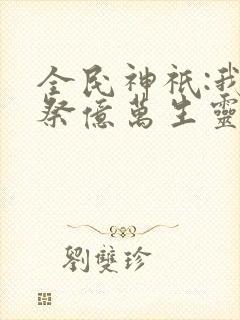 全民神祇:我
祭億萬生靈
劉雙珍